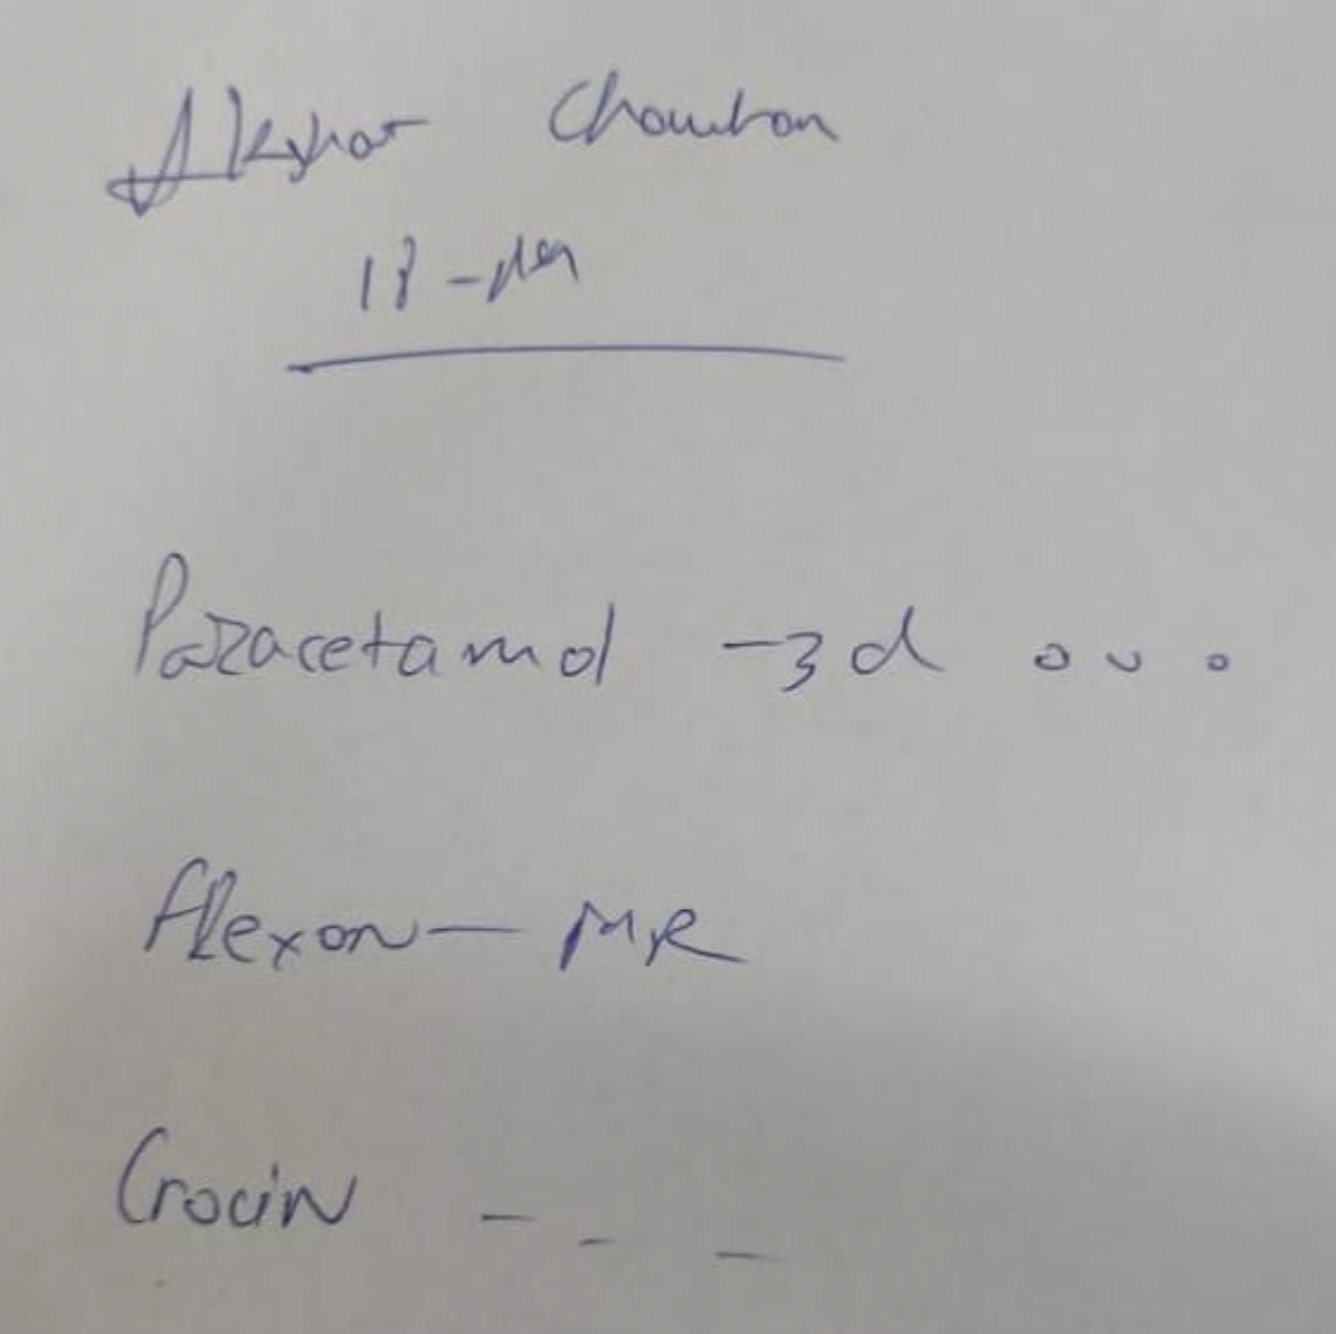 Akshat Chauhan
18 -
Paracetamol - 3 d o u o
flexon — MR
Crocin - - -